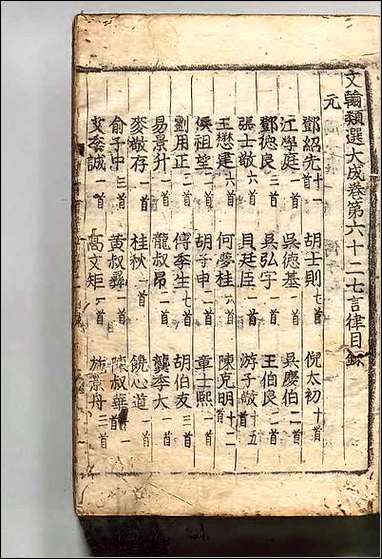 文翰類選大成卷第六十二七言律目錄
元
鄧紹先十一首 胡士則七首 倪太初十首
江學庭二首 吳德基二首 吳慶伯二首
鄧德良三首 吳弘宇一首 王伯良二首
張士敬六首 貝廷臣一首 游子敬十五首
王懋建六首 何夢桂一首 陳克明十二首
侯祖望一首 胡子申一首 章士熙一首
劉用正二首 傅季生七首 胡伯友三首
易景升一首 龍叔昂一首 龔季大一首
麥敬存一首 桂秋一首 饒心道一首
俞子中三首 黃叔彝一首 陳叔華一首
李誠一首 高文矩一首 施景舟三首